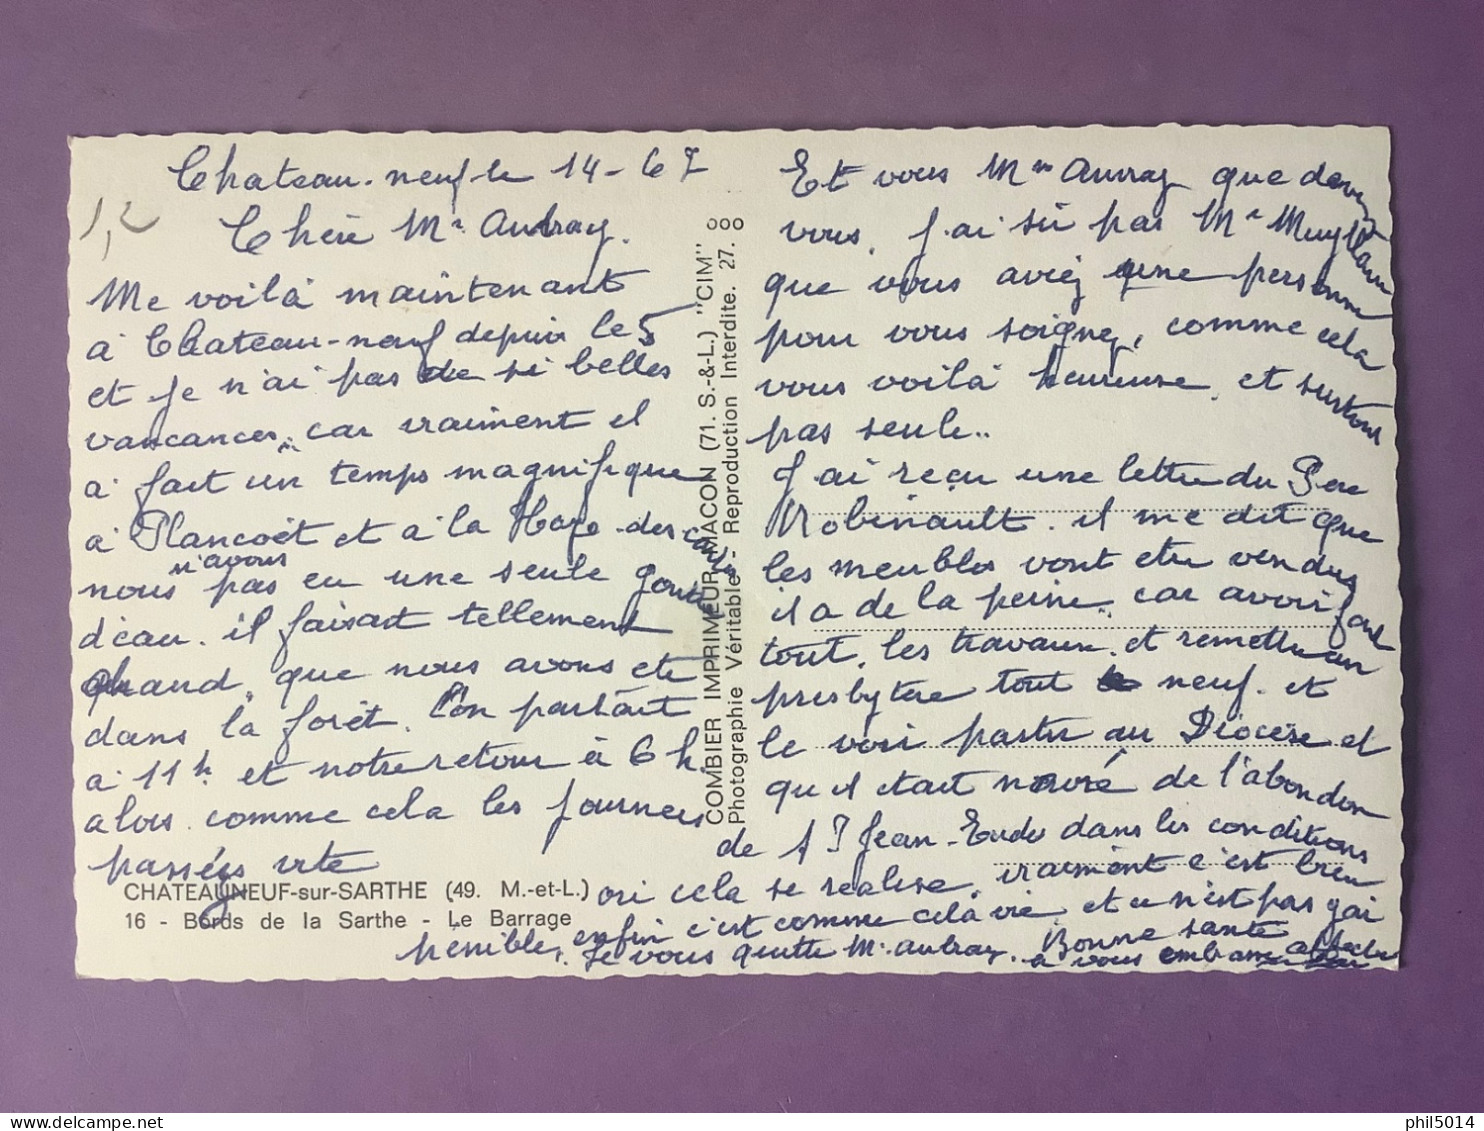 Chateau-neuf le 14-67
1,2
Chère Me Aubray.
Me voilà maintenant
à Chateau-neuf depuis le 5
et je n'ai pas de si belles
vancances, car vraiment il
a fait un temps magnifique
à Plancoët et a la Hage-des
nous n'avons pas eu une seule goutte
d'eau. il faisait tellement
chaud, que nous avons ete
dans la forêt. l'on partait
a 11h et notre retour à 6 h.
alors comme cela les journees
passées vite
CHATEAUNEUF-sur-SARTHE (49. M.-et-L.)
16 - Bords de la Sarthe - Le Barrage
COMBIER IMPRIMEUR MACON (71. S.-&-L.) "CIM"
Photographie Véritable - Reproduction Interdite. 27.
Et vous Mme Auvray que devenez
vous. J'ai sü par Me
que vous aviez une personne
pour vous soigner, comme cela
vous voilà heureuse, et surtout
pas seule..
J'ai reçu une lettre du Pere
Robinault. il me dit que
les meubles vont etre vendus
il a de la peine, car avoir fait
tout, les travaux, et remettre un
presbytere tout neuf. et
le voir partir au Diocèse et
qu'il etait navré de l'abondon
de St Jean-Eude dans les conditions
ou cela se realise, vraiment c'est bien
penible, enfin c'est comme cela la vie et ce n'est pas gai
Je vous quitte Me aubray. Bonne sante
a vous embrasse
phil5014